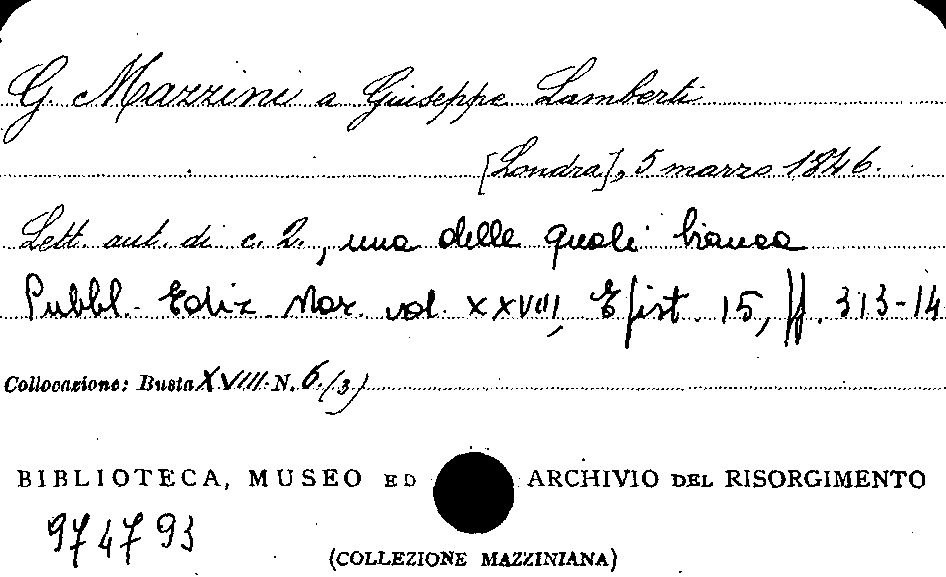 G. Mazzini a Giuseppe Lamberti
[Londra], 5 marzo 1846.
Lett. aut. di c. 2, una delle quali bianca
Pubbl. Ediz. Naz. vol. XXVIII, Epist. 15, pp. 313-14
Collocazione: Busta XVIII N. 6 (3)
BIBLIOTECA, MUSEO ED ARCHIVIO DEL RISORGIMENTO
974793
(COLLEZIONE MAZZINIANA)